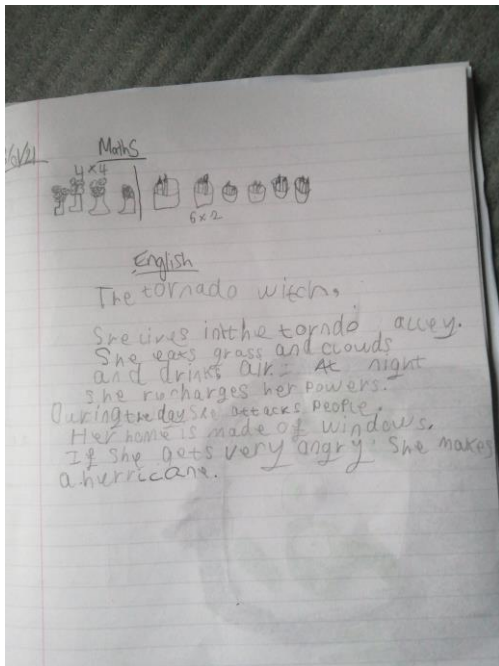 Maths
4 x 4
6 x 2
English
The tornado witch.
She lives in the torndo alley.
She eats grass and clouds
and drinks air. At night
she recharges her powers.
During the day she attacks people.
Her home is made of windows.
If she gets very angry she makes
a hurricane.